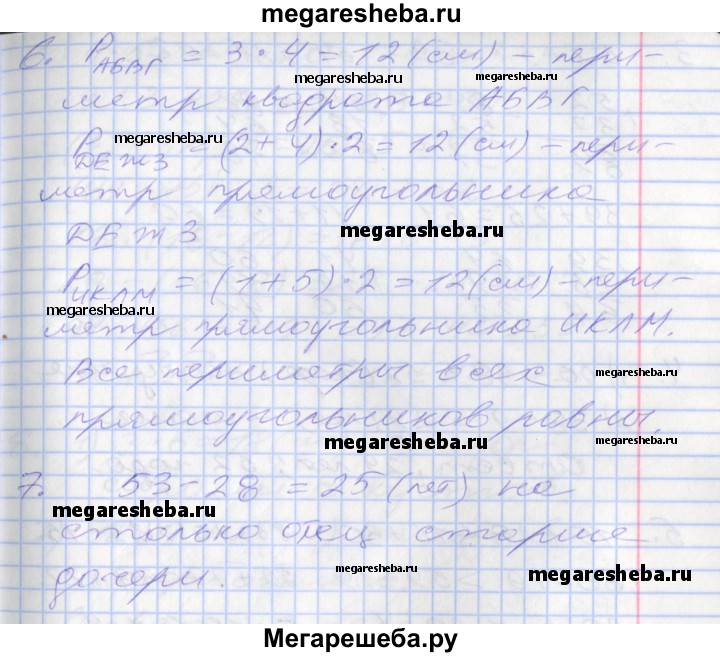 megaresheba.ru
6. P АБВГ = 3 · 4 = 12 (см) – пери–
megaresheba.ru megaresheba.ru
метр квадрата АБВГ
megaresheba.ru
P DЕЖЗ = (2 + 4) · 2 = 12 (см) – пери–
метр прямоугольника
DЕЖЗ megaresheba.ru
P ИКЛМ = (1 + 5) · 2 = 12 (см) – пери–
megaresheba.ru
метр прямоугольника ИКЛМ.
Все периметры всех megaresheba.ru
прямоугольников равны.
megaresheba.ru megaresheba.ru
7. 53 – 28 = 25 (лет) на
megaresheba.ru
столько отец старше
дочери. megaresheba.ru megaresheba.ru
Мегарешеба.ру